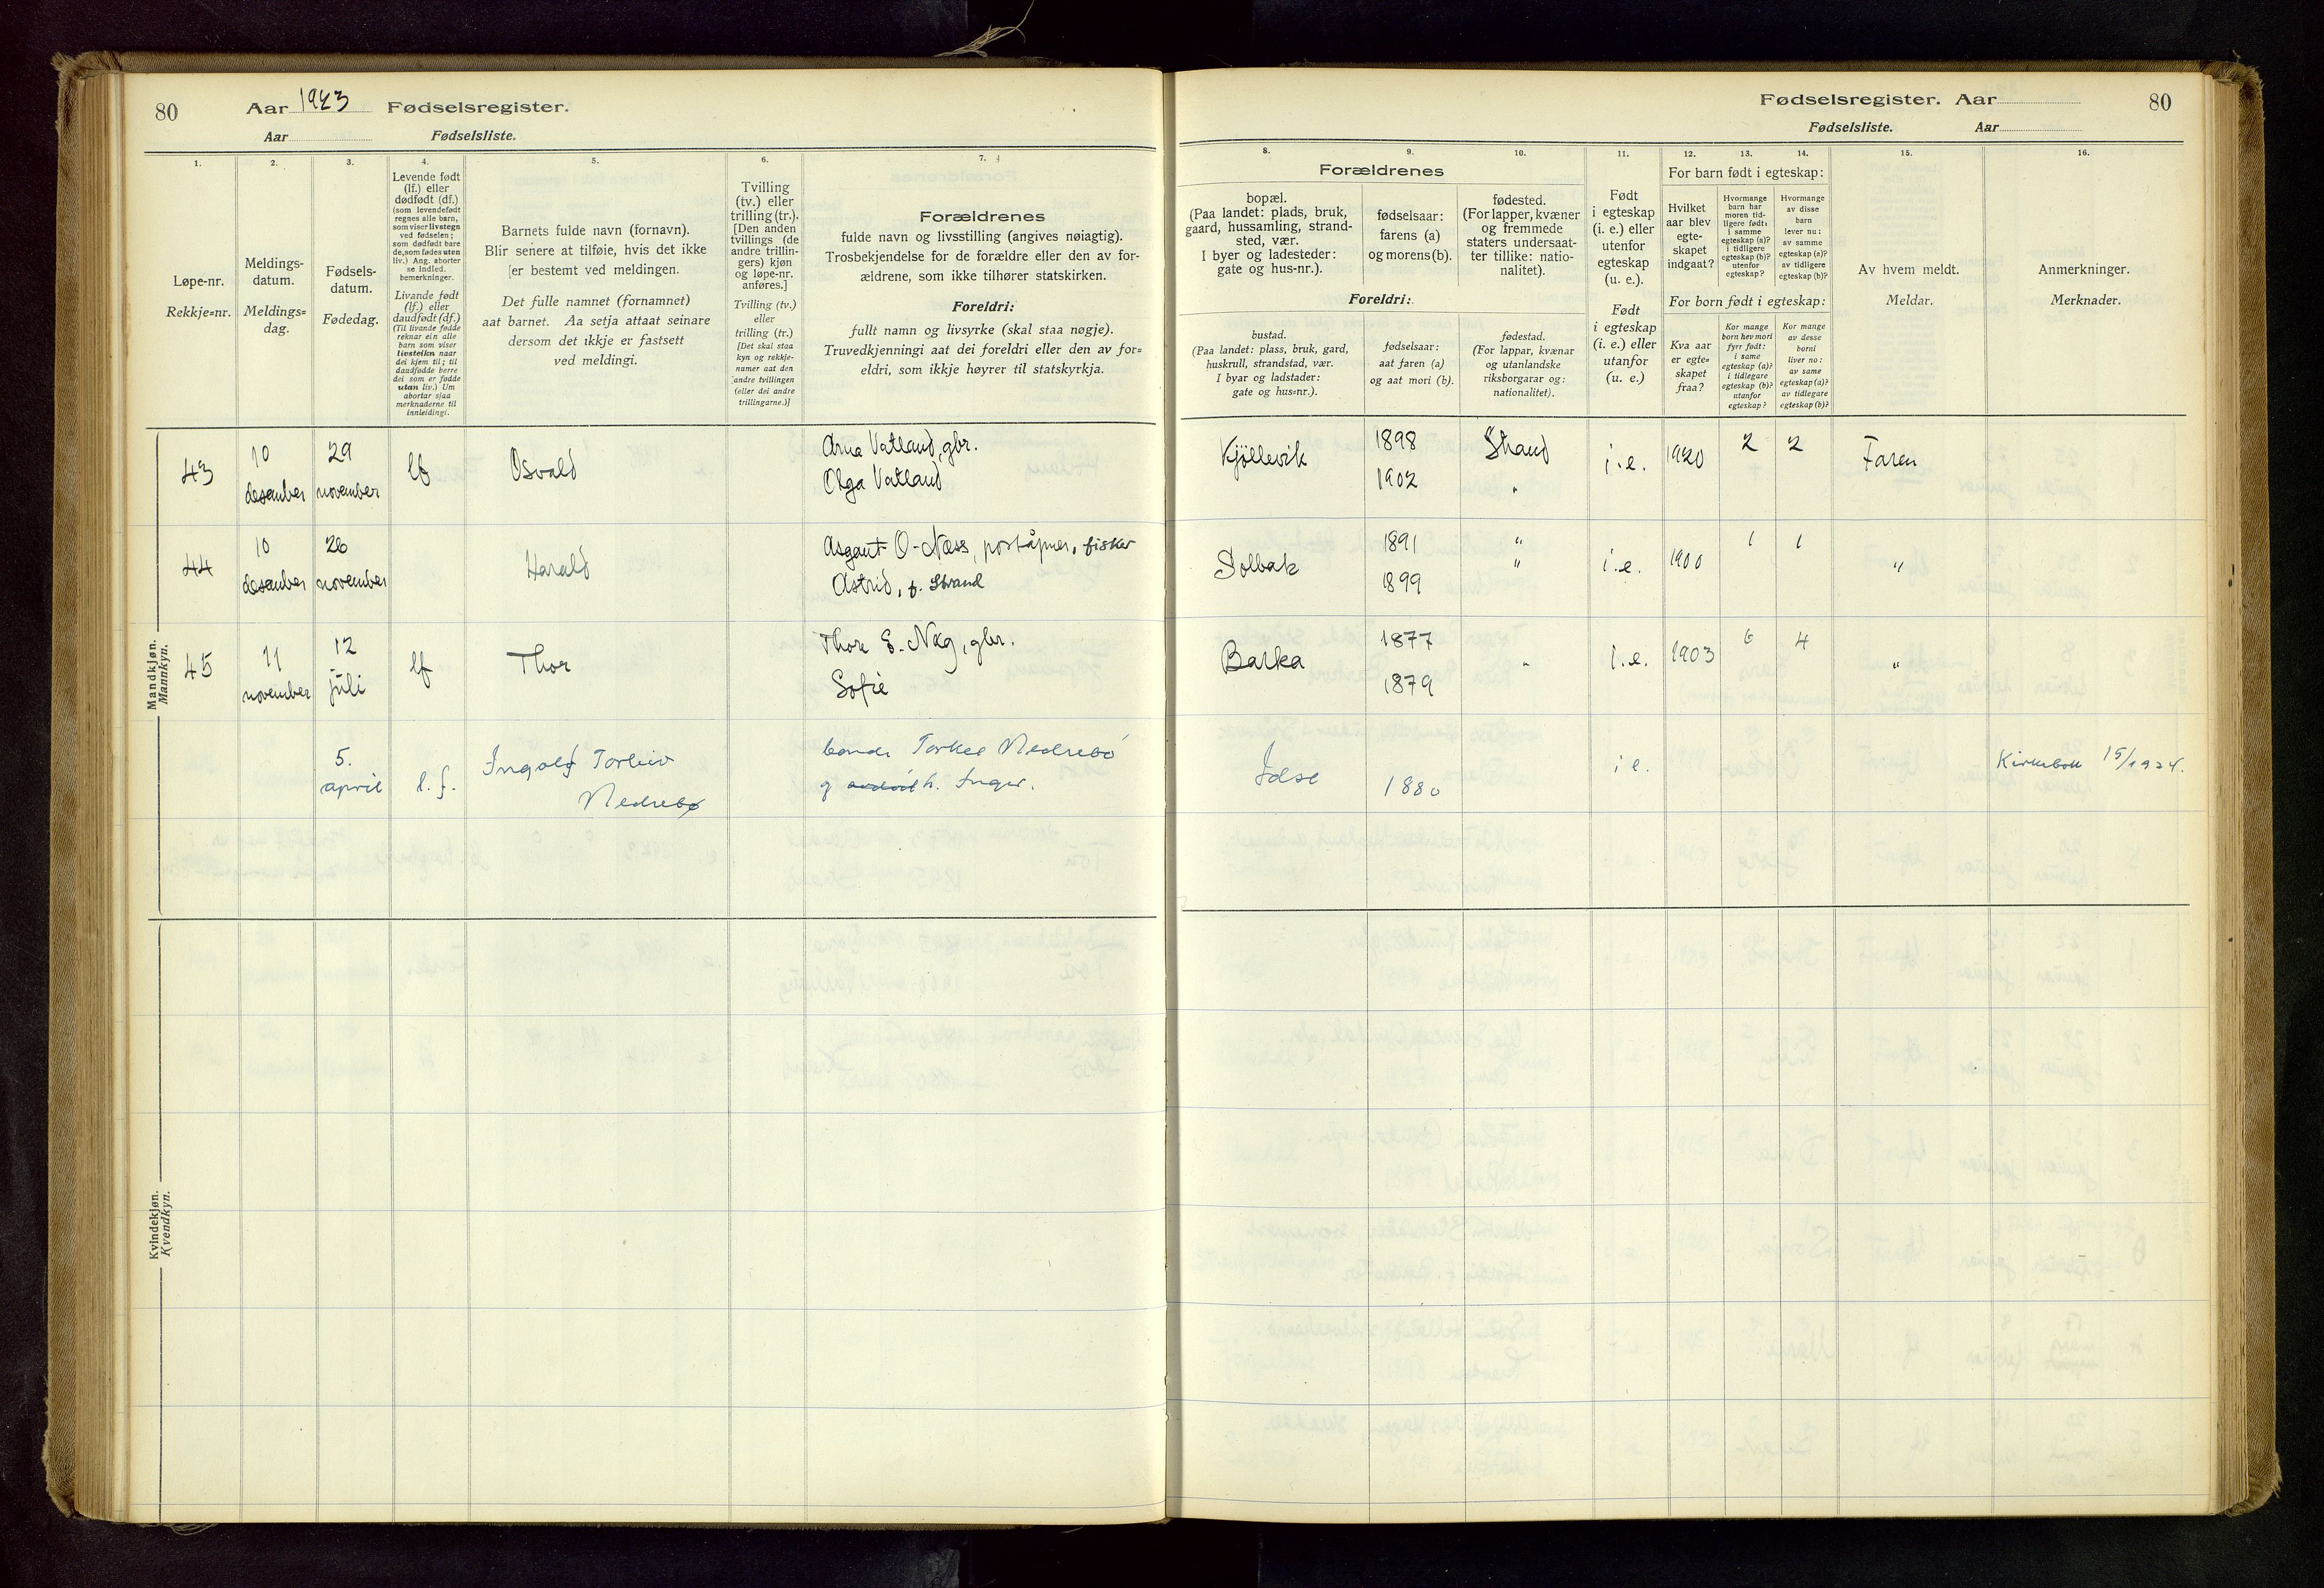 80 Aar 1923 Fødselsregister.
Aar Fødselsliste.
1. 2. 3. 4. 5. 6. 7.
Løpe-nr.
Rekkje=nr.
Meldings-
datum.
Meldings-
dag.
Fødsels-
datum.
Fødedag.
Levende født
(lf.) eller
dødfødt (df.)
(som levendefødt
regnes alle barn,
som viser livstegn
ved fødselen;
som dødfødt bare
de, som fødes uten
liv.) Ang. aborter
se indled.
bemerkninger.
Livande født
(lf.) eller
daudfødt (df.)
(Til livande fødde
reknar ein alle
barn som viser
livsteikn naar
dei kjem til; til
daudfødde berre
dei som er fødde
utan liv.) Um
abortar sjaa
merknaderne til
innleidingi.
Barnets fulde navn (fornavn).
Blir senere at tilføie, hvis det ikke
er bestemt ved meldingen.
Det fulle namnet (fornamnet)
aat barnet. Aa setja attaat seinare
dersom det ikkje er fastsett
ved meldingi.
Tvilling
(tv.) eller
trilling (tr.).
[Den anden
tvillings (de
andre trillin-
gers) kjøn
og løpe-nr.
anføres.]
Tvilling (tv.)
eller
trilling (tr.)
[Det skal staa
kyn og rekkje-
numer aat den
andre tvillingen
(eller dei andre
trillingarne.)]
Forældrenes
fulde navn og livsstilling (angives nøiagtig).
Trosbekjendelse for de forældre eller den av for-
ældrene, som ikke tilhører statskirken.
Foreldri:
fullt namn og livsyrke (skal staa nøgje).
Truvedkjenningi aat dei foreldri eller den av for=
eldri, som ikkje høyrer til statskyrkja.
Mandkjøn.
Mannkyn.
43 10 desember 29 november lf Osvald
Arne Vatland, gbr.
Olga Vatland
44 10 desember 26 november Harald
Asgaut O. Næss, poståpner, fisker
Astrid, f. Strand
45 11 november 12 juli lf Thor
Thore E. Nag, gbr.
Sofie
5. april l. f. Ingolf Torleiv
Nedrebø
bonde Torkel Nedrebø
og h. Inger.
Kvindekjøn.
Kvendkyn.
Fødselsregister. Aar 80
Fødselsliste. Aar
8. 9. 10. 11. 12. 13. 14. 15. 16.
Forældrenes
bopæl.
(Paa landet: plads, bruk,
gaard, hussamling, strand-
sted, vær.
I byer og ladesteder:
gate og hus-nr.).
fødselsaar:
farens (a)
og morens (b).
fødested.
(For lapper, kvæner
og fremmede
staters undersaat-
ter tillike: natio-
nalitet).
Foreldri:
bustad.
(Paa landet: plass, bruk, gard,
huskrull, strandstad, vær.
I byar og ladstader:
gate og hus=nr.).
fødselsaar:
aat faren (a)
og aat mori (b).
fødestad.
(For lappar, kvænar
og utanlandske
riksborgarar og:
nationalitet).
Født
i egteskap
(i. e.) eller
utenfor
egteskap
(u. e.).
Født
i egteskap
(i. e.) eller
utanfor
(u. e.)
For barn født i egteskap:
Hvilket
aar blev
egte-
skapet
indgaat?
Hvormange
barn har
moren tid-
ligere født:
i samme
egteskap (a)?
i tidligere
egteskap (b)?
utenfor
egteskap?
Hvormange
av disse
barn
lever nu:
av samme
egteskap (a)?
av tidligere
egteskap (b)?
For born født i egteskap:
Kva aar
er egte=
skapet
fraa?
Kor mange
born hev mori
fyrr født:
i same
egteskap (a)?
i tidlegare
egteskap (b)?
utanfor
egteskap?
Kor mange
av desse
borni
liver no:
av same
egteskap (a)?
av tidlegare
egteskap (b)?
Av hvem meldt.
Meldar.
Anmerkninger.
Merknader.
Kjøllevik 1898 Strand i. e. 1920 2 2 Faren
1902 "
Solbak 1891 " i. e. 1900 1 1 "
1899 "
Barka 1877 " i. e. 1903 6 4 "
1879
Idse 1880 i e. Kirkebok 15/1924.